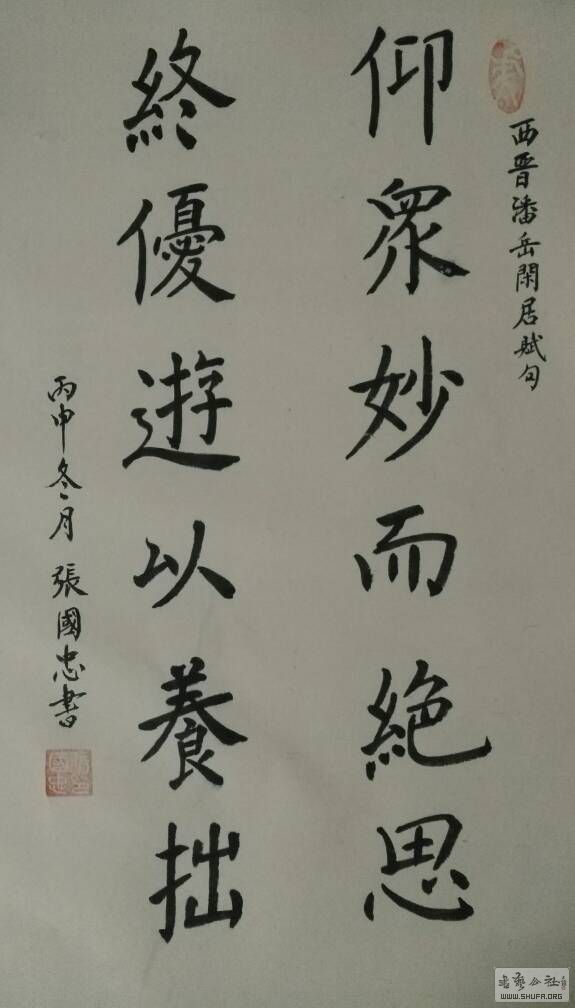 西晋潘岳閑居賦句
仰眾妙而絶思
終優遊以養拙
丙申冬月 張國忠書
書藝公社
WWW.SHUFA.ORG